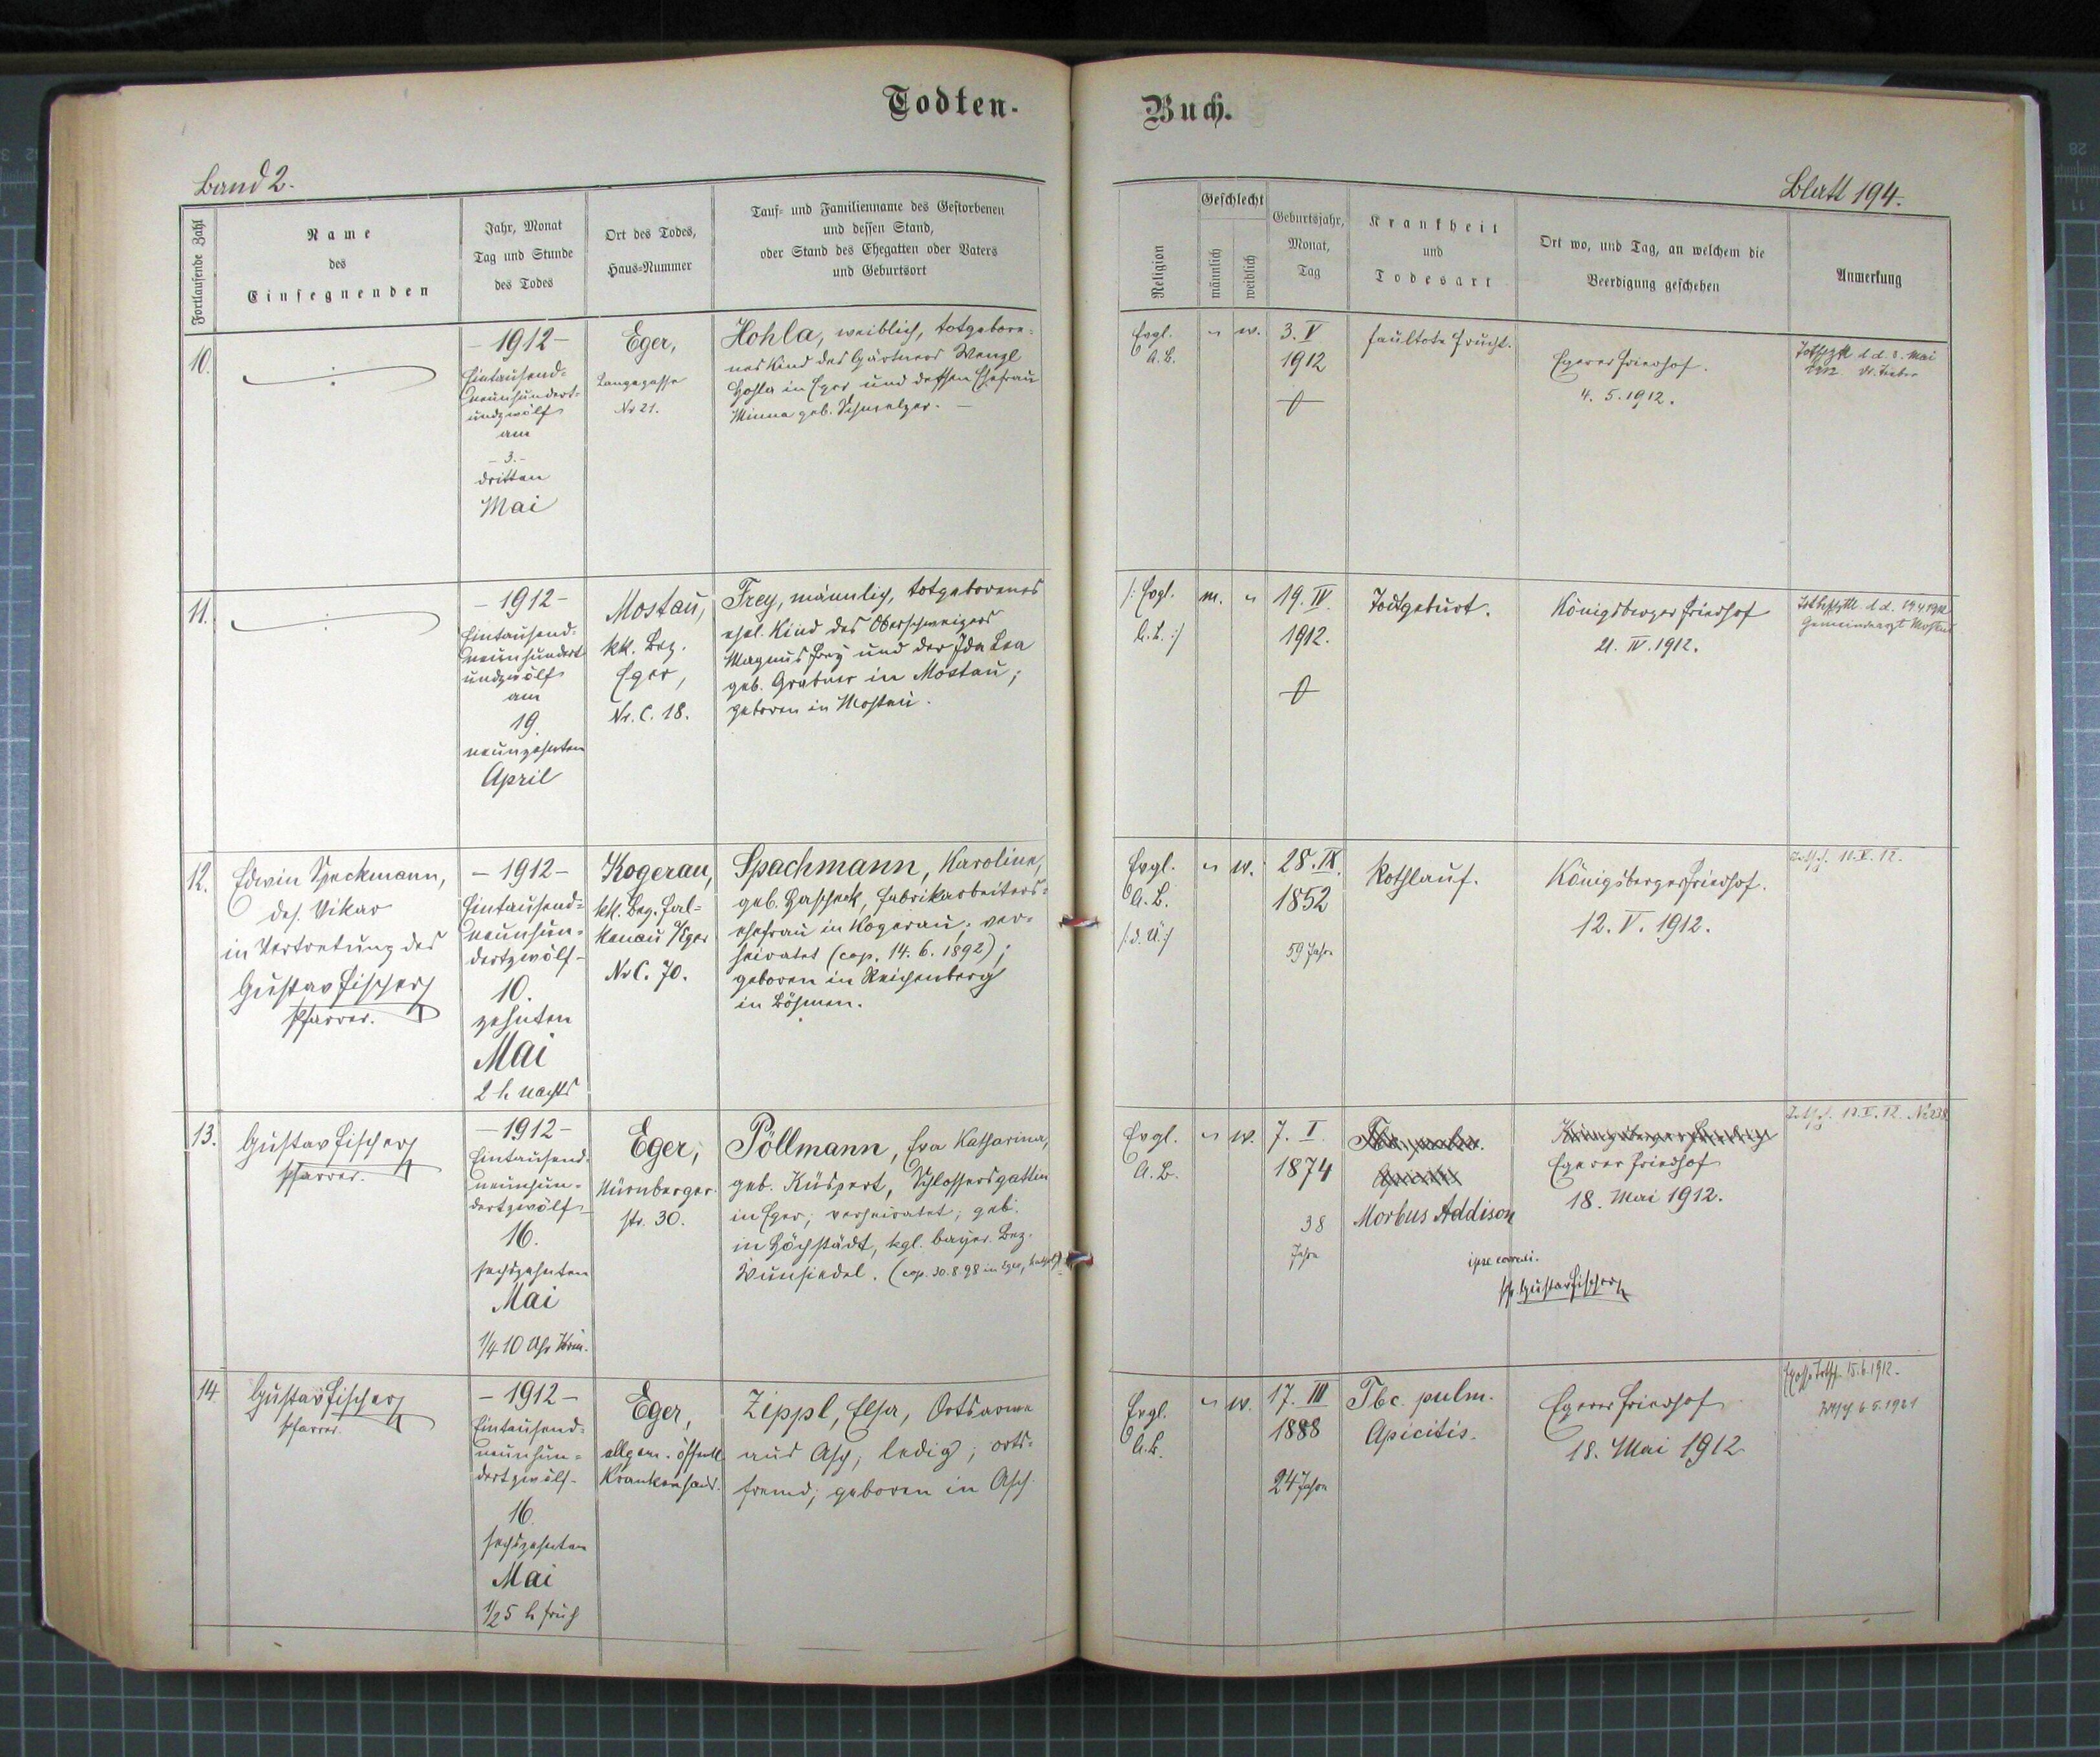 Todten-
Buch.
Band 2.
Blatt 194.
Fortlaufende Zahl
Name
des
Einsegnenden
Jahr, Monat
Tag und Stunde
des Todes
Ort des Todes,
Haus-Nummer
Tauf- und Familienname des Gestorbenen
und dessen Stand,
oder Stand des Ehegatten oder Vaters
und Geburtsort
Religion
Geschlecht
männlich
weiblich
Geburtsjahr,
Monat,
Tag
Krankheit
und
Todesart
Ort wo, und Tag, an welchem die
Beerdigung geschehen
Anmerkung
10.
- 1912 -
Eintausend-
neunhundert-
undzwölf
am
- 3. -
dritten
Mai
Eger,
Langegasse
Nr 21.
Hohla, weiblich, totgebore-
nes Kind des Gärtners Wenzl
Hohla in Eger und dessen Ehefrau
Minna geb. Schmelzer. -
Evgl.
A.B.
"
w.
3. V
1912
faultote Frucht.
Egerer Friedhof.
4. 5. 1912.
d. d. 3. Mai
1912.
11.
- 1912 -
Eintausend-
neunhundert
undzwölf
am
19.
neunzehnten
April
Mostau,
kk. Bez.
Eger,
Nr. C. 18.
Frey, männlich, totgeborenes
ehel. Kind des Oberschweizers
Magnus Frey und der Ida Lea
geb. Grabner in Mostau;
geboren in Mostau.
/: Evgl.
A.B. :/
m.
"
19. IV.
1912.
Todtgeburt.
Königsberger Friedhof
21. IV. 1912.
d. d. 19 4 1912
Gemeindearzt Mostau
12.
Edwin Speckmann,
des. Vikar
in Vertretung des
Gustav Fischer
Pfarrer.
- 1912 -
Eintausend-
neunhun-
dertzwölf -
10.
zehnten
Mai
2 h. nachts
Kogerau,
kk. Bez. Fal-
kenau /Eger
Nr C. 70.
Spachmann, Karoline,
geb. Haschek, Fabrikarbeiters-
ehefrau in Kogerau; ver-
heiratet (cop. 14. 6. 1892);
geboren in Reichenberg
in Böhmen.
Evgl.
A.B.
/: d. Ü :/
"
w.
28. IX.
1852
59 Jahre
Rothlauf.
Königsberger Friedhof.
12. V. 1912.
10. V. 12.
13.
Gustav Fischer
Pfarrer.
- 1912 -
Eintausend-
neunhun-
dertzwölf -
16.
sechszehnten
Mai
1/4 10 Uhr Vorm.
Eger,
Nürnberger-
str. 30.
Pöllmann, Eva Katharina,
geb. Küspert, Schlossersgattin
in Eger; verheiratet; geb.
in Höchstädt, kgl. bayer. Bez.
Wunsiedel. (cop. 30. 8. 98 in Eger,
Evgl.
A.B.
"
w.
7. I.
1874
38
Jahre
Tbc. pulm.
Apicitis
Morbus Addison
Königsberger Friedhof
Egerer Friedhof
18. Mai 1912.
ipse correxi.
Pfr. Gustav Fischer
12. V. 12.
14.
Gustav Fischer
Pfarrer.
- 1912 -
Eintausend-
neunhun-
dertzwölf -
16.
sechszehnten
Mai
1/2 5 h früh
Eger,
allgem. öffentl.
Krankenhaus.
Zippl, Elsa, Ortsarme
aus Asch, ledig; orts-
fremd; geboren in Asch.
Evgl.
A.B.
"
w.
17. III
1888
24 Jahre
Tbc. pulm.
Apicitis.
Egerer Friedhof
18. Mai 1912
15. 6. 1912.
6 5. 1921